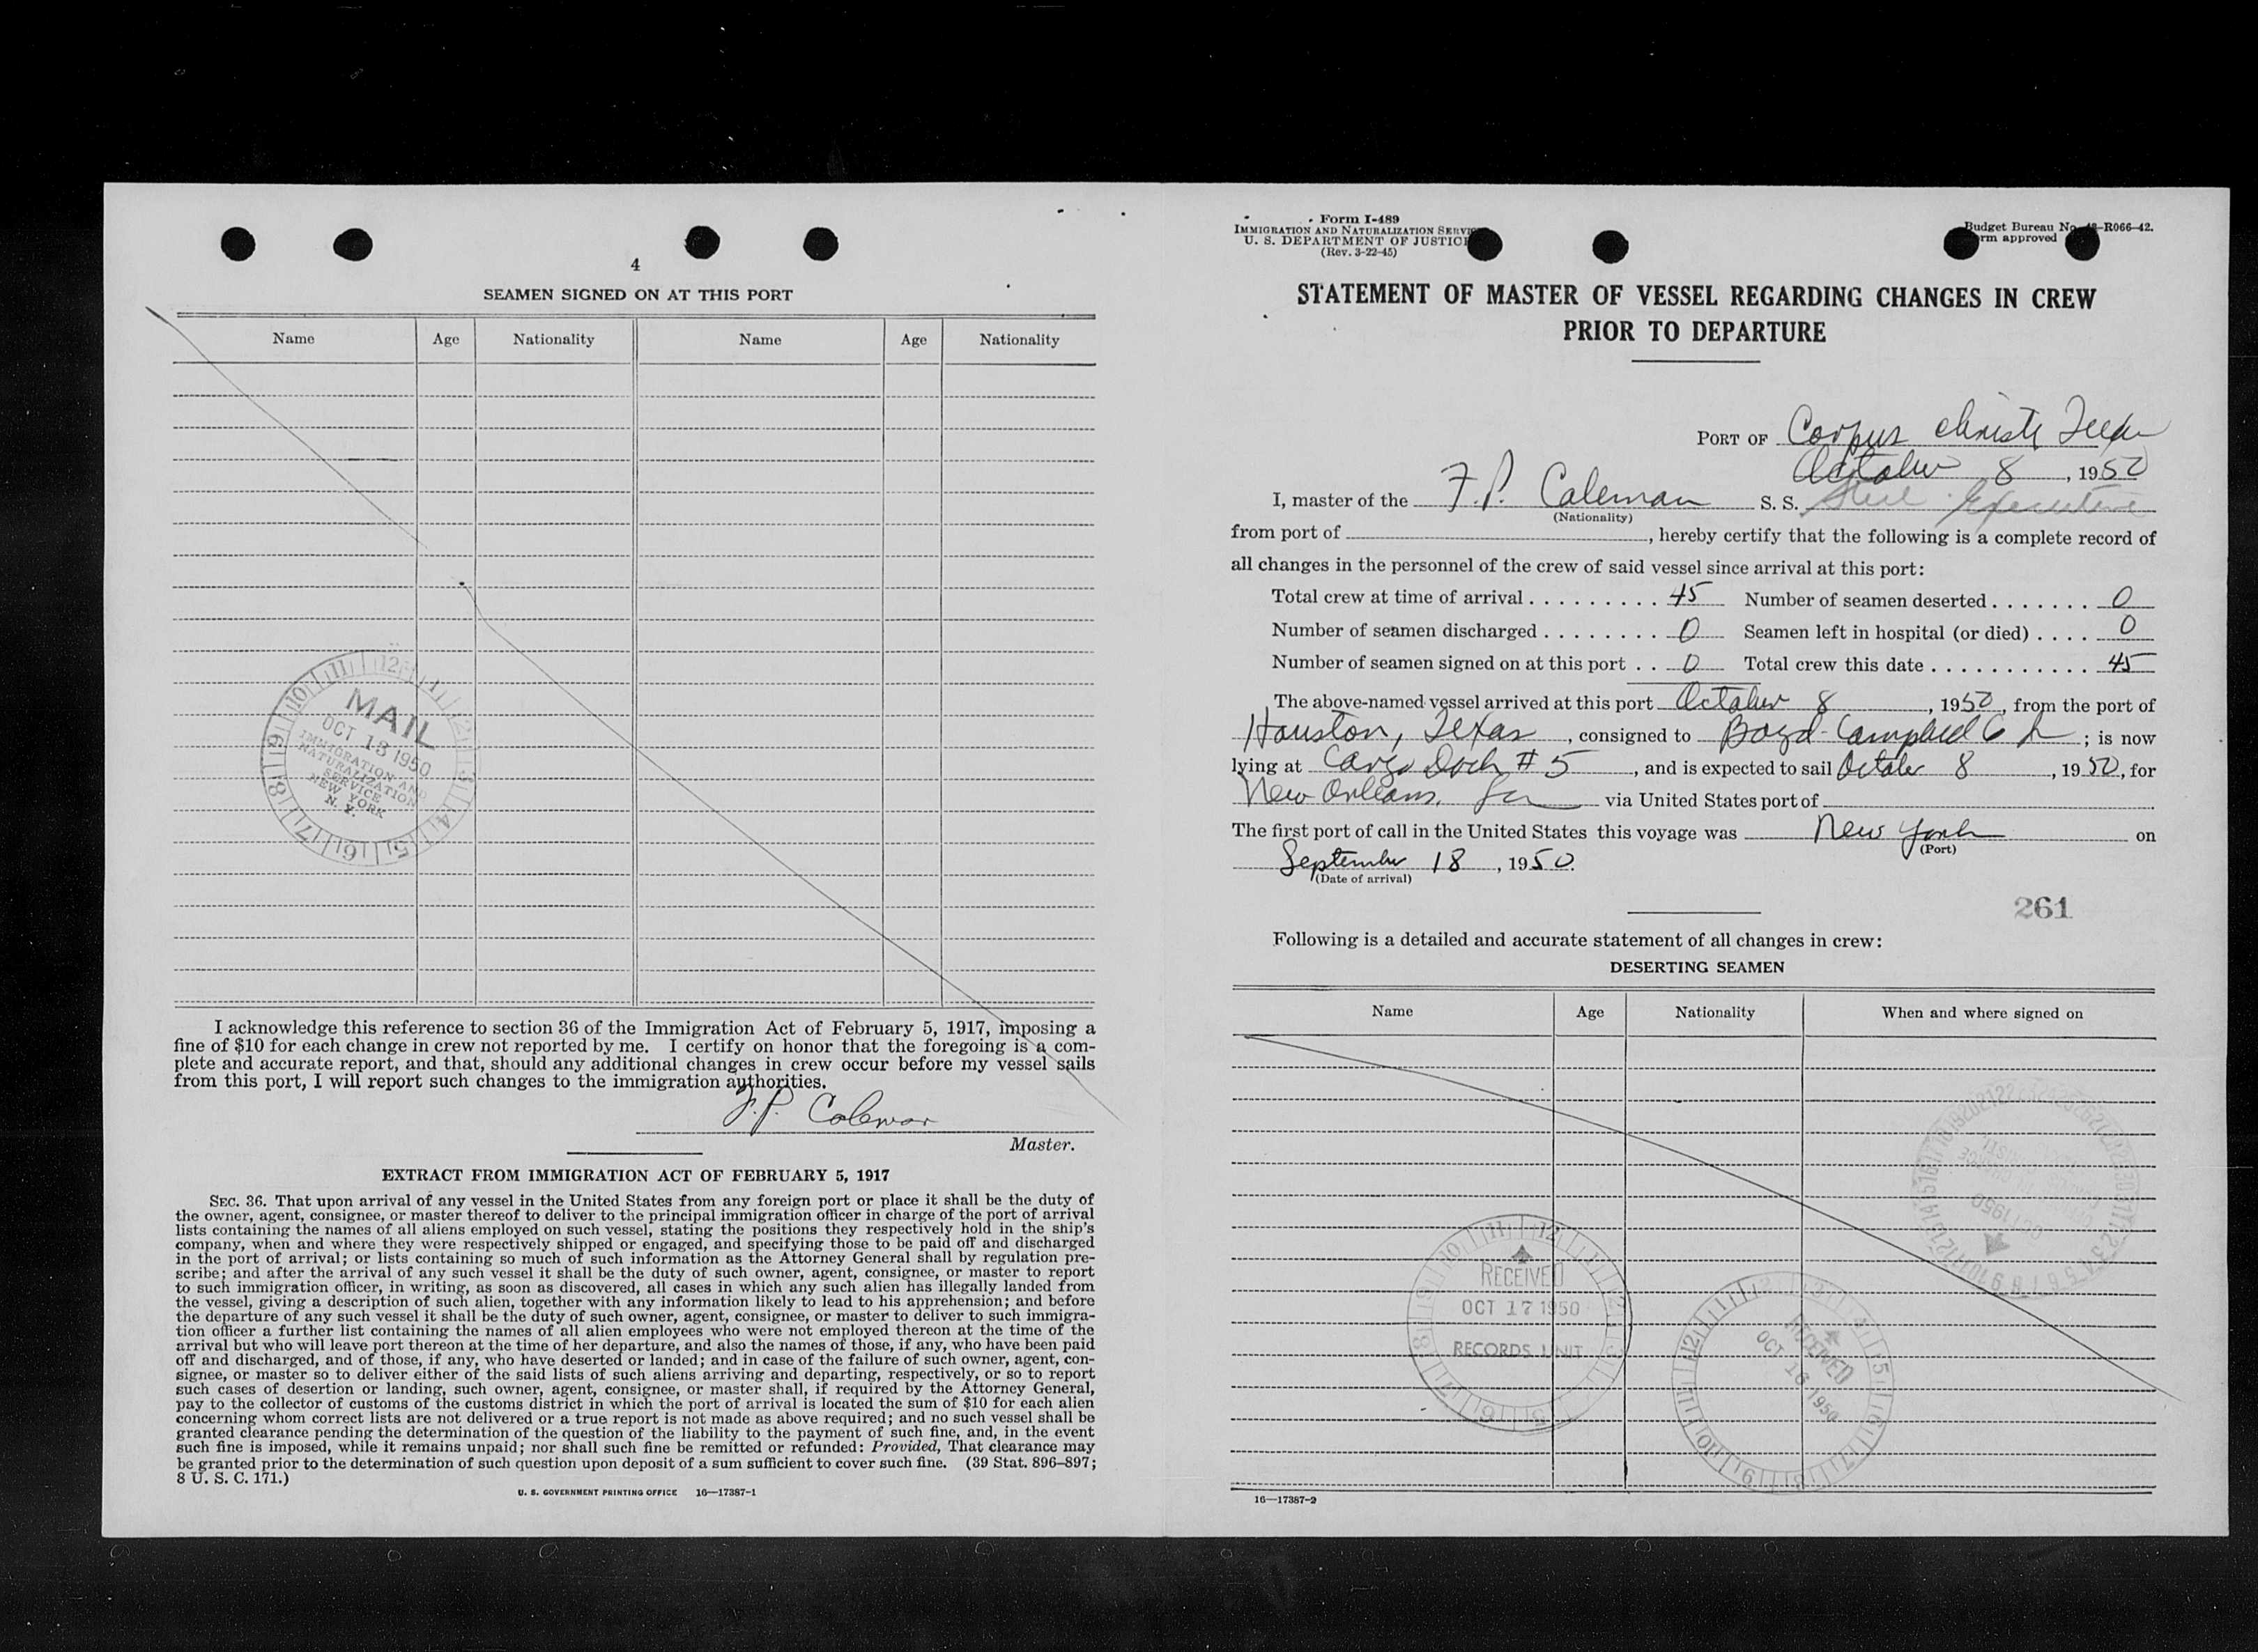 4
SEAMEN SIGNED ON AT THIS PORT
Name Age Nationality Name Age Nationality
MAIL
OCT 13 1950
IMMIGRATION AND
NATURALIZATION
SERVICE
NEW YORK
N. Y.
I acknowledge this reference to section 36 of the Immigration Act of February 5, 1917, imposing a
fine of $10 for each change in crew not reported by me. I certify on honor that the foregoing is a com-
plete and accurate report, and that, should any additional changes in crew occur before my vessel sails
from this port, I will report such changes to the immigration authorities.
F.P. Coleman
Master.
EXTRACT FROM IMMIGRATION ACT OF FEBRUARY 5, 1917
SEC. 36. That upon arrival of any vessel in the United States from any foreign port or place it shall be the duty of
the owner, agent, consignee, or master thereof to deliver to the principal immigration officer in charge of the port of arrival
lists containing the names of all aliens employed on such vessel, stating the positions they respectively hold in the ship's
company, when and where they were respectively shipped or engaged, and specifying those to be paid off and discharged
in the port of arrival; or lists containing so much of such information as the Attorney General shall by regulation pre-
scribe; and after the arrival of any such vessel it shall be the duty of such owner, agent, consignee, or master to report
to such immigration officer, in writing, as soon as discovered, all cases in which any such alien has illegally landed from
the vessel, giving a description of such alien, together with any information likely to lead to his apprehension; and before
the departure of any such vessel it shall be the duty of such owner, agent, consignee, or master to deliver to such immigra-
tion officer a further list containing the names of all alien employees who were not employed thereon at the time of the
arrival but who will leave port thereon at the time of her departure, and also the names of those, if any, who have been paid
off and discharged, and of those, if any, who have deserted or landed; and in case of the failure of such owner, agent, con-
signee, or master so to deliver either of the said lists of such aliens arriving and departing, respectively, or so to report
such cases of desertion or landing, such owner, agent, consignee, or master shall, if required by the Attorney General,
pay to the collector of customs of the customs district in which the port of arrival is located the sum of $10 for each alien
concerning whom correct lists are not delivered or a true report is not made as above required; and no such vessel shall be
granted clearance pending the determination of the question of the liability to the payment of such fine, and, in the event
such fine is imposed, while it remains unpaid; nor shall such fine be remitted or refunded: Provided, That clearance may
be granted prior to the determination of such question upon deposit of a sum sufficient to cover such fine. (39 Stat. 896–897;
8 U. S. C. 171.)
U. S. GOVERNMENT PRINTING OFFICE 16—17387-1
Form I-489
IMMIGRATION AND NATURALIZATION
U. S. DEPARTMENT OF JUSTICE
(Rev. 3-22-45)
Budget Bureau R066-42.
approved
STATEMENT OF MASTER OF VESSEL REGARDING CHANGES IN CREW
PRIOR TO DEPARTURE
PORT OF Corpus Christi
October 8, 1950
I, master of the F.P. Coleman S. S. Steel Executive
(Nationality)
from port of , hereby certify that the following is a complete record of
all changes in the personnel of the crew of said vessel since arrival at this port:
Total crew at time of arrival . . . . . . . . . 45 Number of seamen deserted . . . . . . . 0
Number of seamen discharged . . . . . . . . 0 Seamen left in hospital (or died) . . . . 0
Number of seamen signed on at this port . . 0 Total crew this date . . . . . . . . . . . 45
The above-named vessel arrived at this port October 8, 1950, from the port of
Houston, Texas, consigned to Boyd-Campbell Co ; is now
lying at Cargo Dock # 5, and is expected to sail October 8, 1950, for
New Orleans, via United States port of
The first port of call in the United States this voyage was New York on
(Port)
September 18, 1950.
(Date of arrival)
261
Following is a detailed and accurate statement of all changes in crew:
DESERTING SEAMEN
Name Age Nationality When and where signed on
RECEIVED
OCT 17 1950
RECORDS UNIT
RECEIVED
OCT 16 1950
16—17387-2